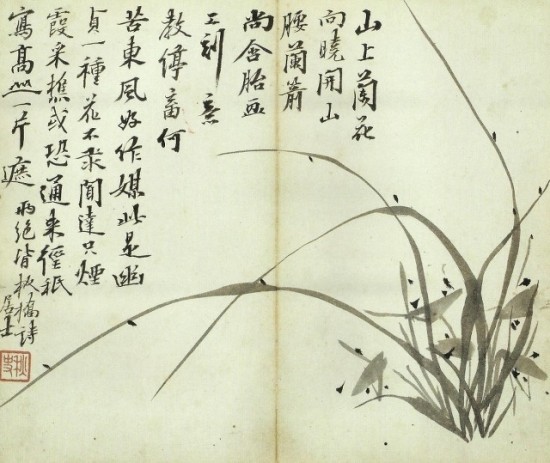 山上蘭花
向曉開山
腰蘭箭
尚含胎画
工刻意
教停畜何
苦東風好作媒此是幽
貞一種花不求聞達只煙
霞采樵或恐通來徑祇
寫高山一片遮 兩絕皆板橋詩
居士